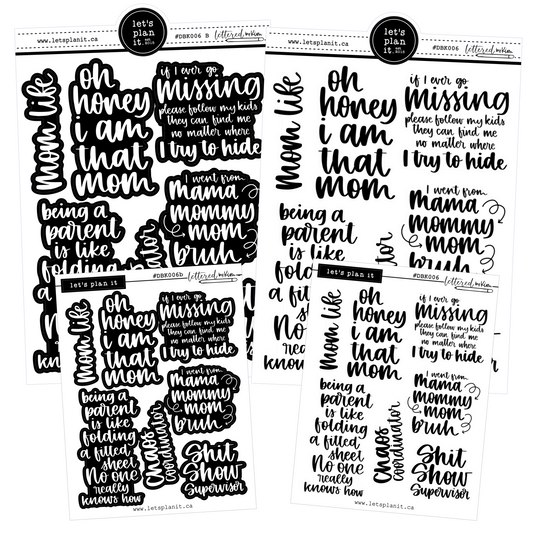 let's
plan
it.
www.letsplanit.ca
#DBK006 B
lettered by Kim
mom life
oh
honey
i am
that
mom
if I ever go
missing
please follow my kids
they can find me
no matter where
I try to hide
I went from
mama
mommy
mom
bruh
being a
parent
is like
let's
plan
it.
www.letsplanit.ca
#DBK006
lettered by Kim
mom life
oh
honey
i am
that
mom
if I ever go
missing
please follow my kids
they can find me
no matter where
I try to hide
I went from
mama
mommy
mom
bruh
being a
parent
is like
let's plan it
#DBK006b
lettered by Kim
mom life
oh
honey
i am
that
mom
if I ever go
missing
please follow my kids
they can find me
no matter where
I try to hide
I went from
mama
mommy
mom
bruh
being a
parent
is like
folding
a fitted
sheet
No one
really
knows how
Chaos
coordinator
Shit
Show
Supervisor
www.letsplanit.ca
let's plan it
#DBK006
lettered by Kim
mom life
oh
honey
i am
that
mom
if I ever go
missing
please follow my kids
they can find me
no matter where
I try to hide
I went from
mama
mommy
mom
bruh
being a
parent
is like
folding
a fitted
sheet
No one
really
knows how
Chaos
coordinator
Shit
Show
Supervisor
www.letsplanit.ca